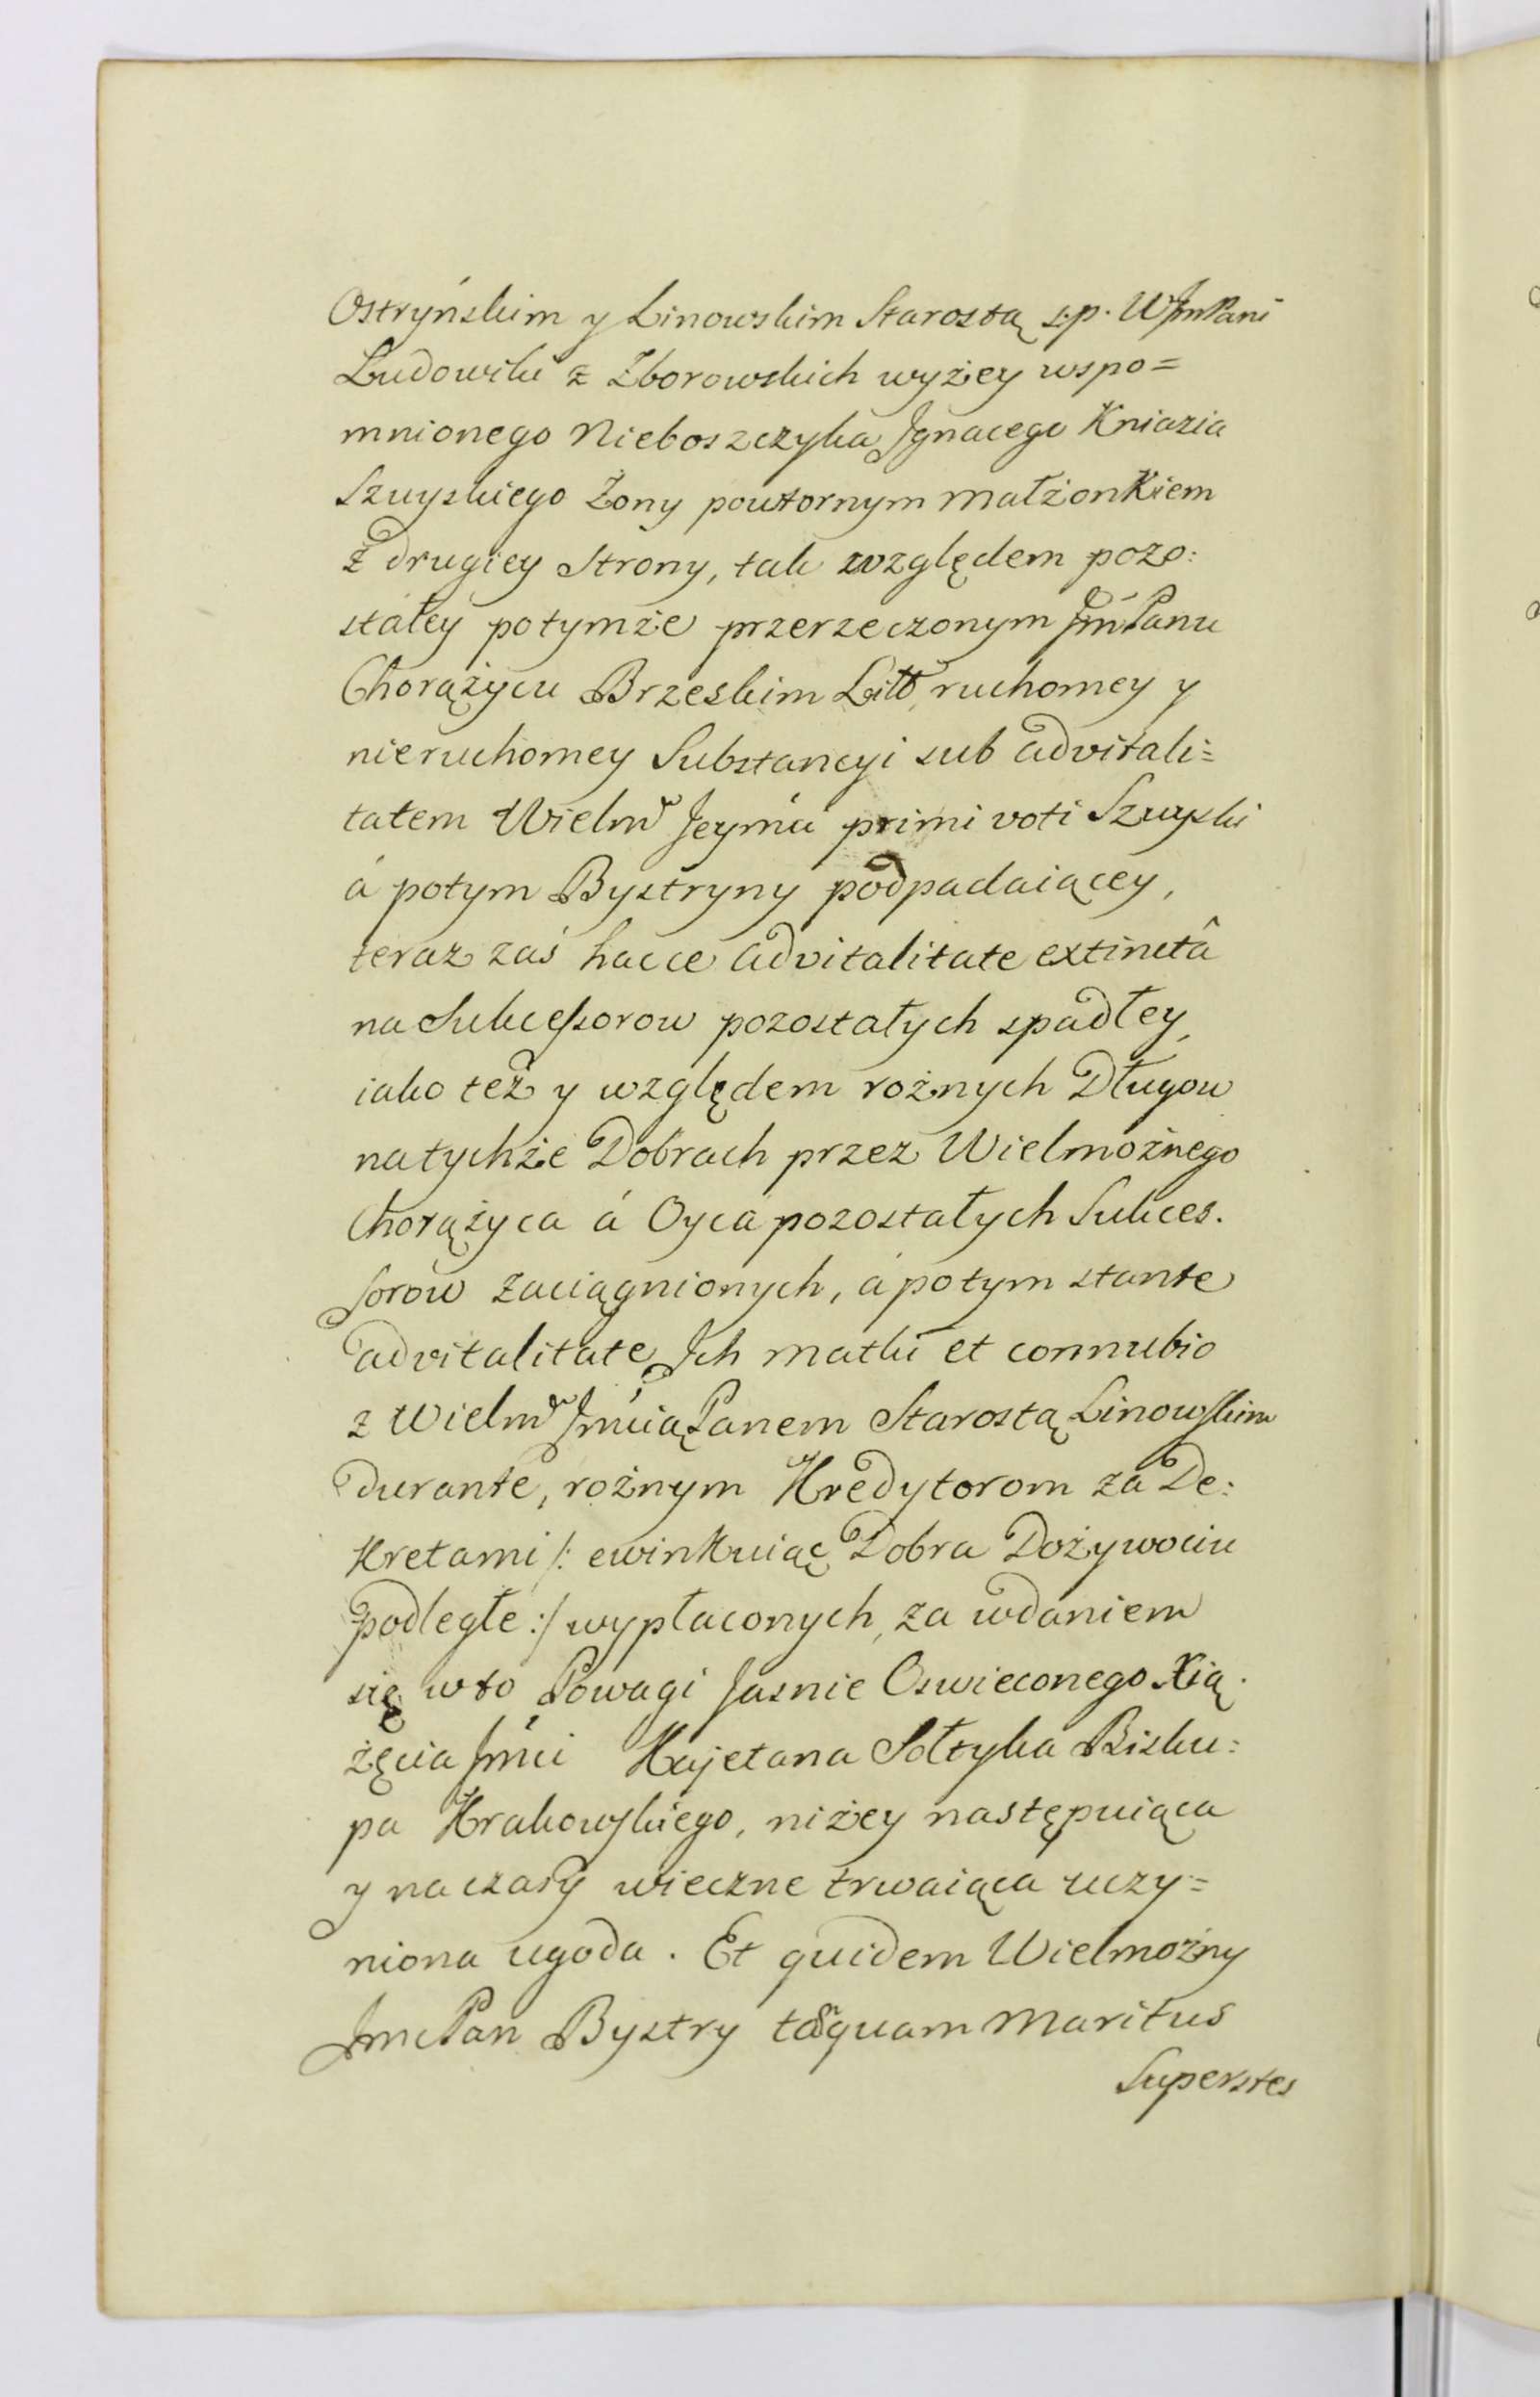 Ostryńskim y Linowskim Starostą s.p. WJmPani
Ludowiki z Zborowskich wyżey wspo=
mnionego Nieboszczyka Jgnacego Kniazia
Szuyskiego Żony powtornym małżonkiem
z drugiey Strony, tak względem pozo:
stałey potymże przerzeczonym JmPanu
Chorążycu Brzeskim Litt ruchomey y
nieruchomey Substancyi sub advitali=
tatem Wielm Jeymci primi voti Szuyski
á potym Bystryny podpadaiącey,
teraz zaś hacce advitalitate extinctâ
na Sukcessorow pozostałych spadłey,
iako też y względem rożnych Długow
natychże Dobrach przez Wielmożnego
Chorążyca á Oyca pozostałych Sukces.
sorow zaciągnionych, á potym stante
advitalitate Jch matki et connubio
z Wielm Jmcią Panem Starostą Linowskim
durante, rożnym Kredytorom za De:
kretami /: ewinkuiąc Dobra Dożywociu
podległe :/ wypłaconych, za wdaniem
się wto Powagi Jasnie Oswieconego Xią.
żęcia Jmci Kajetana Sołtyka Bisku:
pa Krakowskiego, niżey następuiąca
y na czasy wieczne trwaiąca uczy=
niona ugoda. Et quidem Wielmożny
JmcPan Bystry tãquam Maritus
Superstes